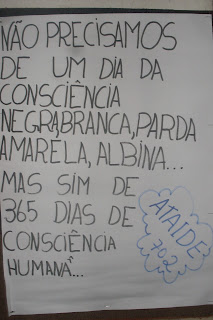 NÃO PRECISAMOS
DE UM DIA DA
CONSCIÊNCIA
NEGRA,BRANCA,PARDA
AMARELA, ALBINA...
MAS SIM DE
365 DIAS DE
CONSCIÊNCIA
HUMANA"...
ATAIDE
702